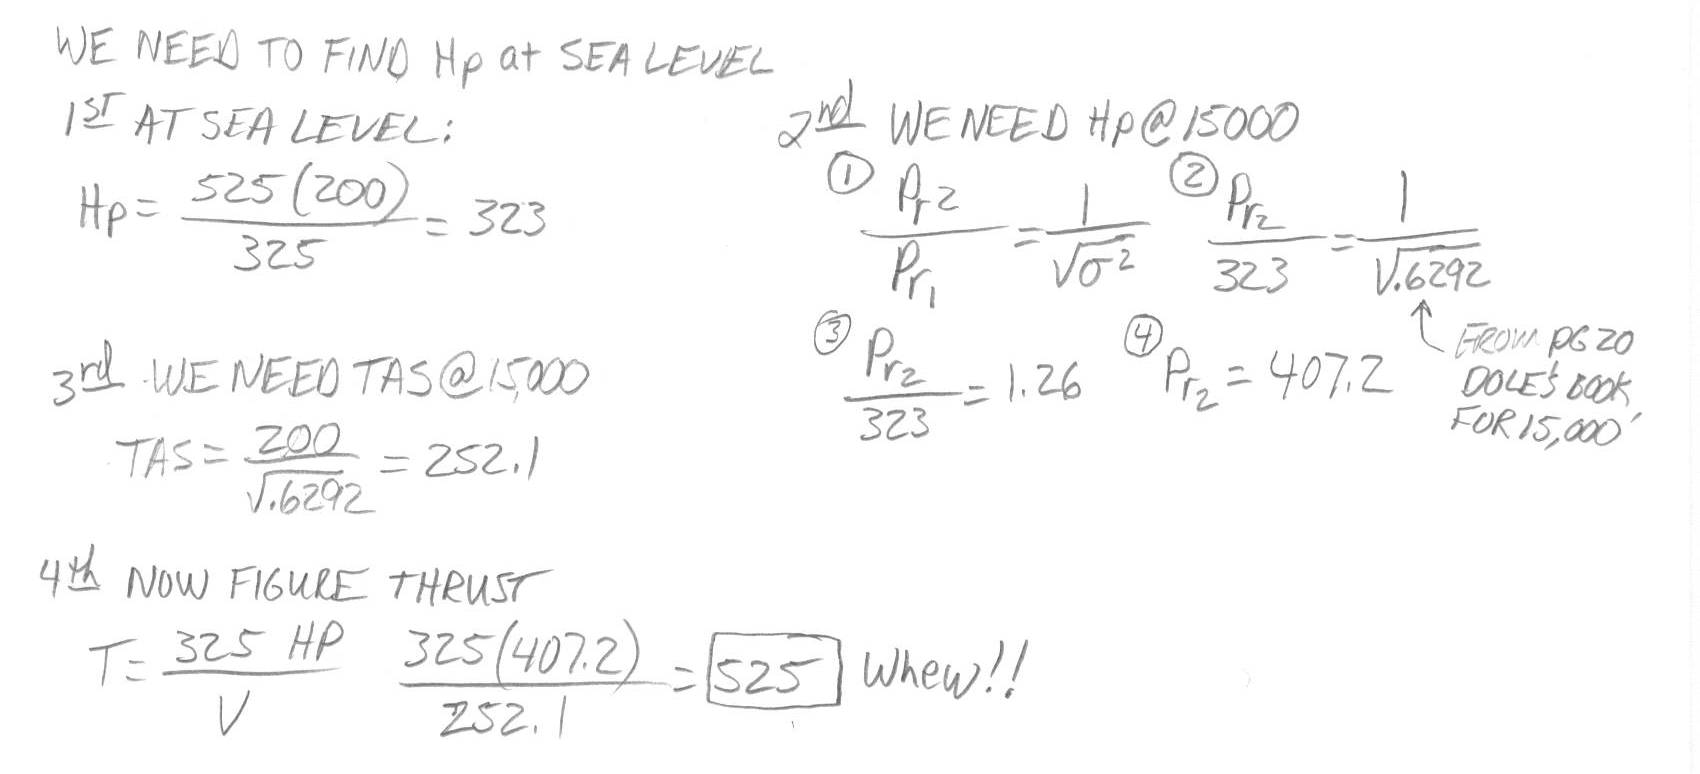 WE NEED TO FIND Hp at SEA LEVEL
1ST AT SEA LEVEL:
Hp = 525(200) / 325 = 323
2nd WE NEED Hp @ 15000
① Pr2 / Pr1 = 1 / √σ2
② Pr2 / 323 = 1 / √.6292
↑ FROM PG 20
DOLE'S BOOK
FOR 15,000'
③ Pr2 / 323 = 1.26
④ Pr2 = 407.2
3rd WE NEED TAS @ 15,000
TAS = 200 / √.6292 = 252.1
4th NOW FIGURE THRUST
T = 325 HP / V 325(407.2) / 252.1 = 525 Whew!!